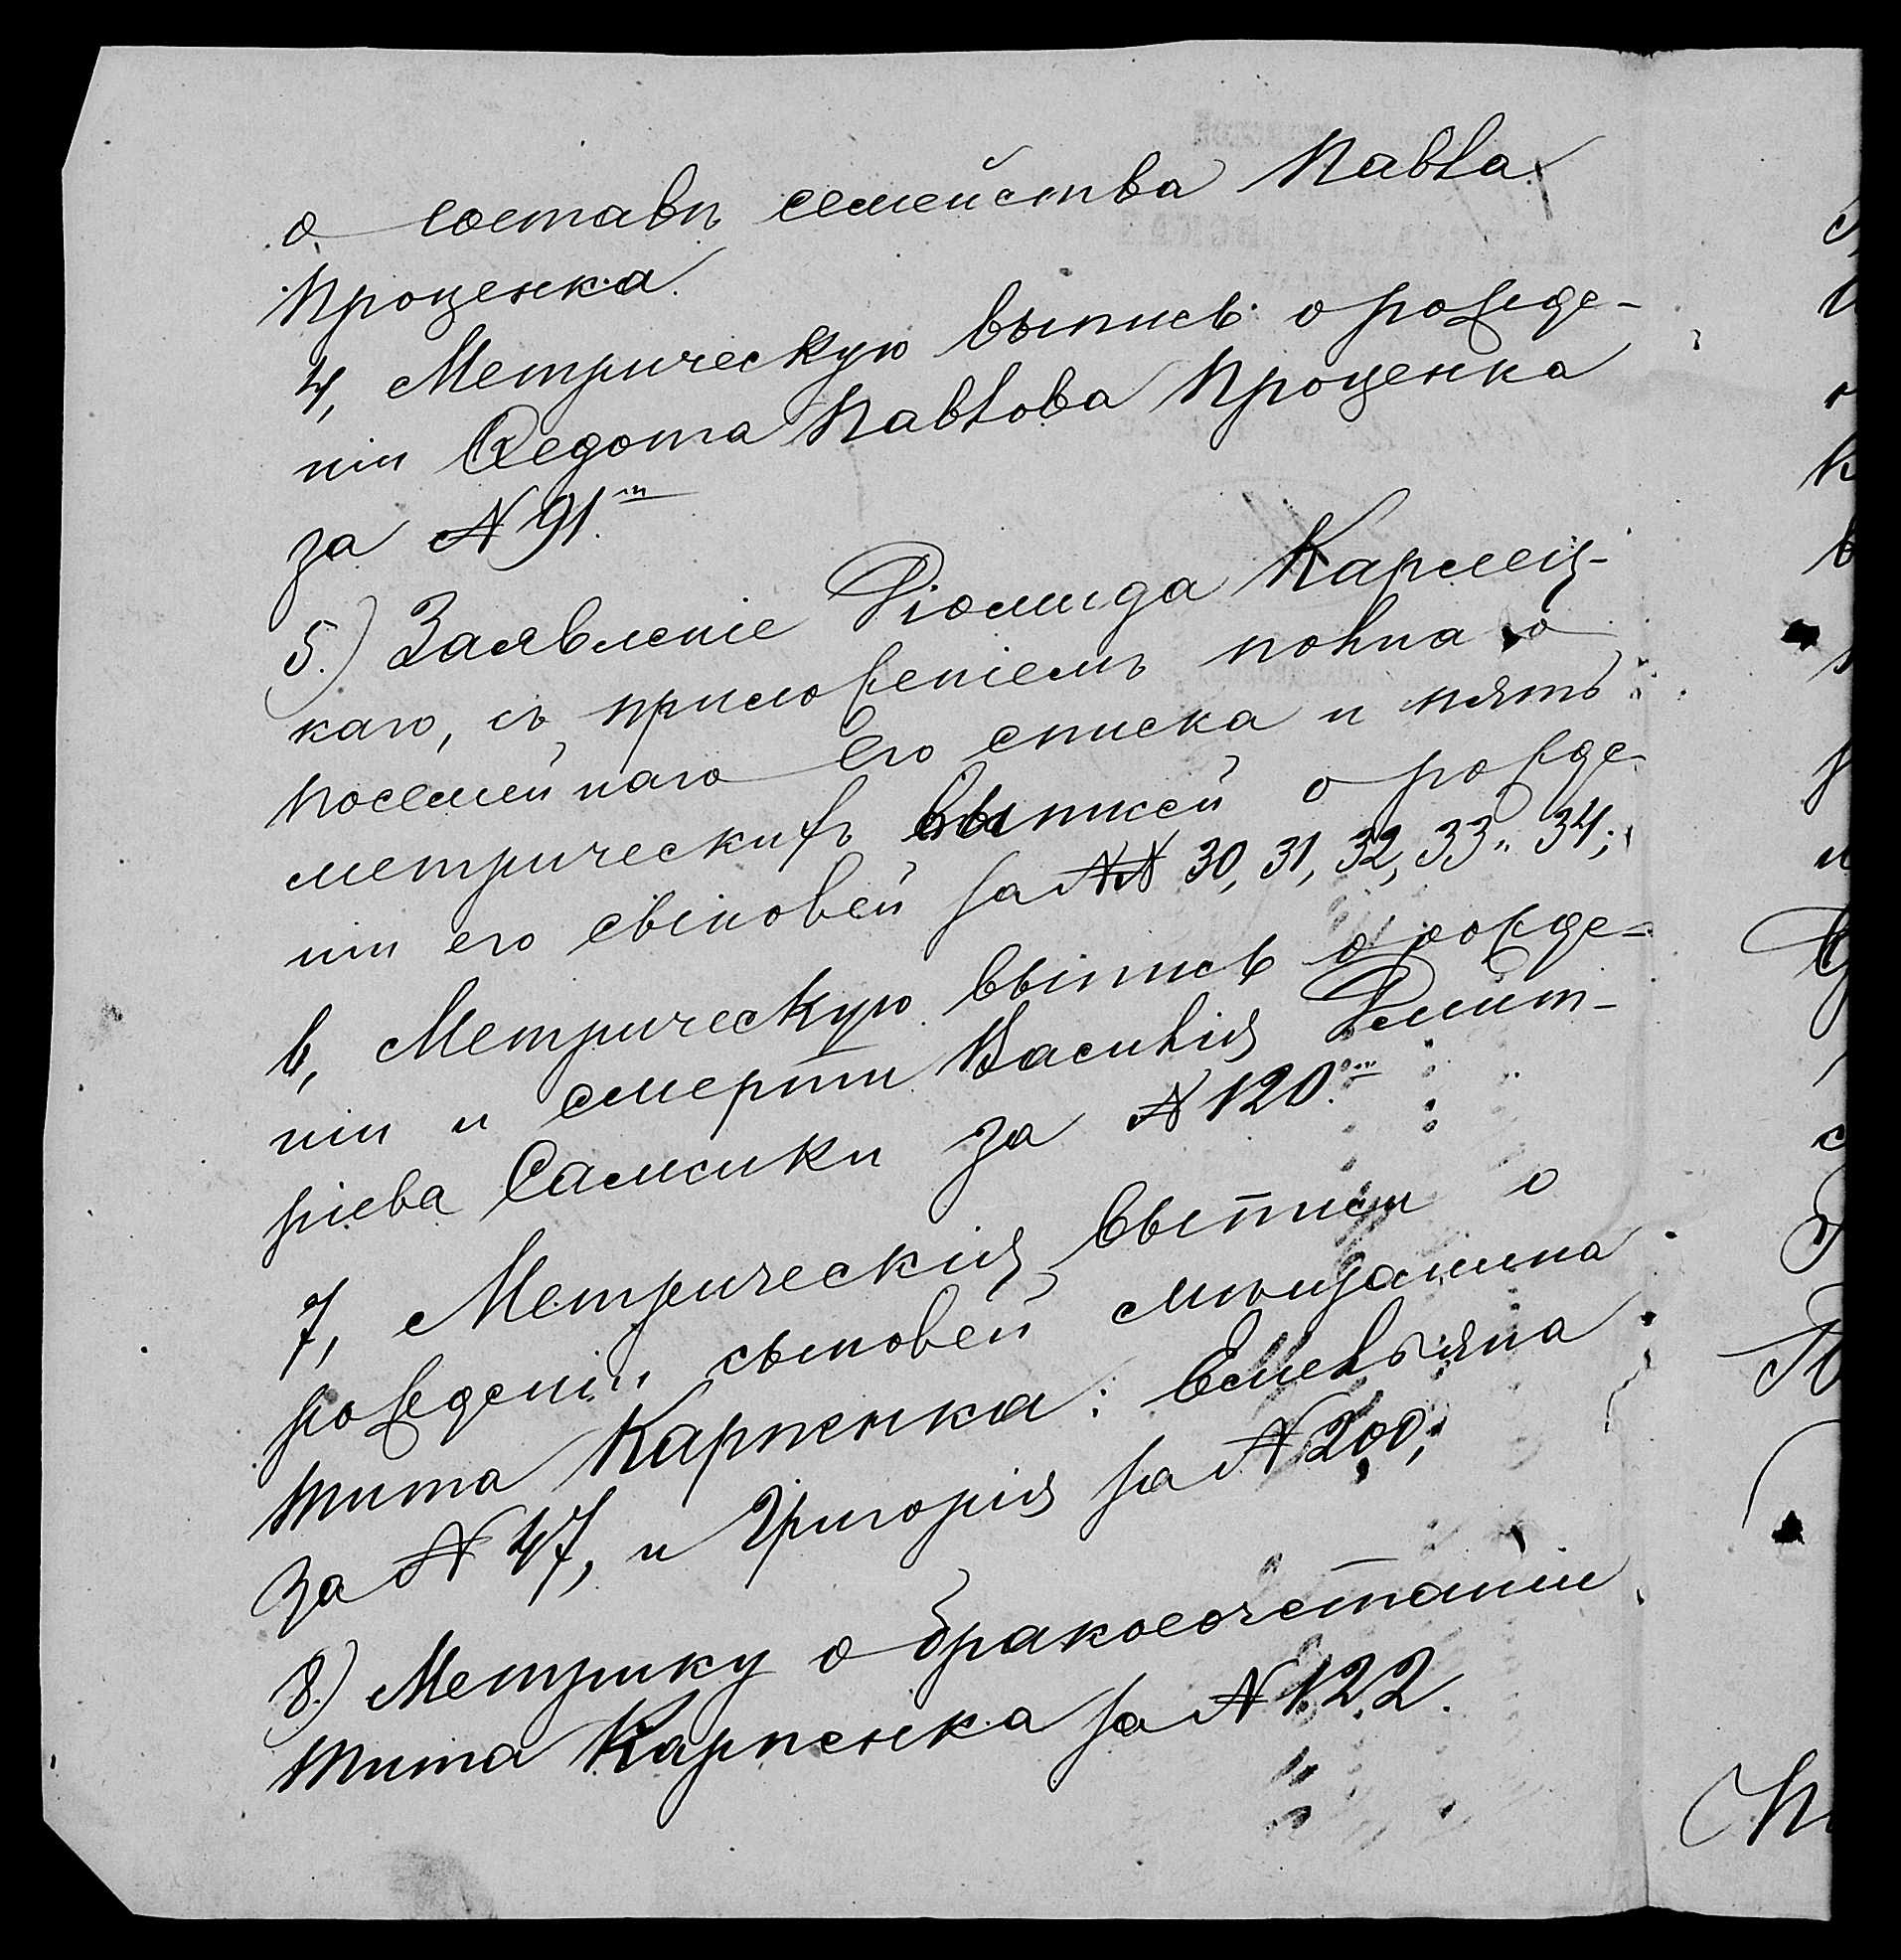 о составѣ семейства Павла
Проценка.
4, Метрическую выпись о рожде-
ніи Ѳедота Павлова Проценка
за № 91.
5.) Заявленіе Діомида Кармец-
каго, съ приложеніемъ полна о
посемейнаго его списка и пять
метрическихъ выписей о рожде-
ніи его сыновей за №№ 30, 31, 32, 33 и 34;
6, Метрическую выпись о рожде-
ніи и смерти Василія Дмит-
ріева за № 120.
7, Метрическия выписи о
рожденіи сыновей мѣщанина
Тита Карпенка: Емельяна
за № 47, и Григорія за № 200;
8.) Метрику о бракосочетаніи
Тита Карпенка за № 122.